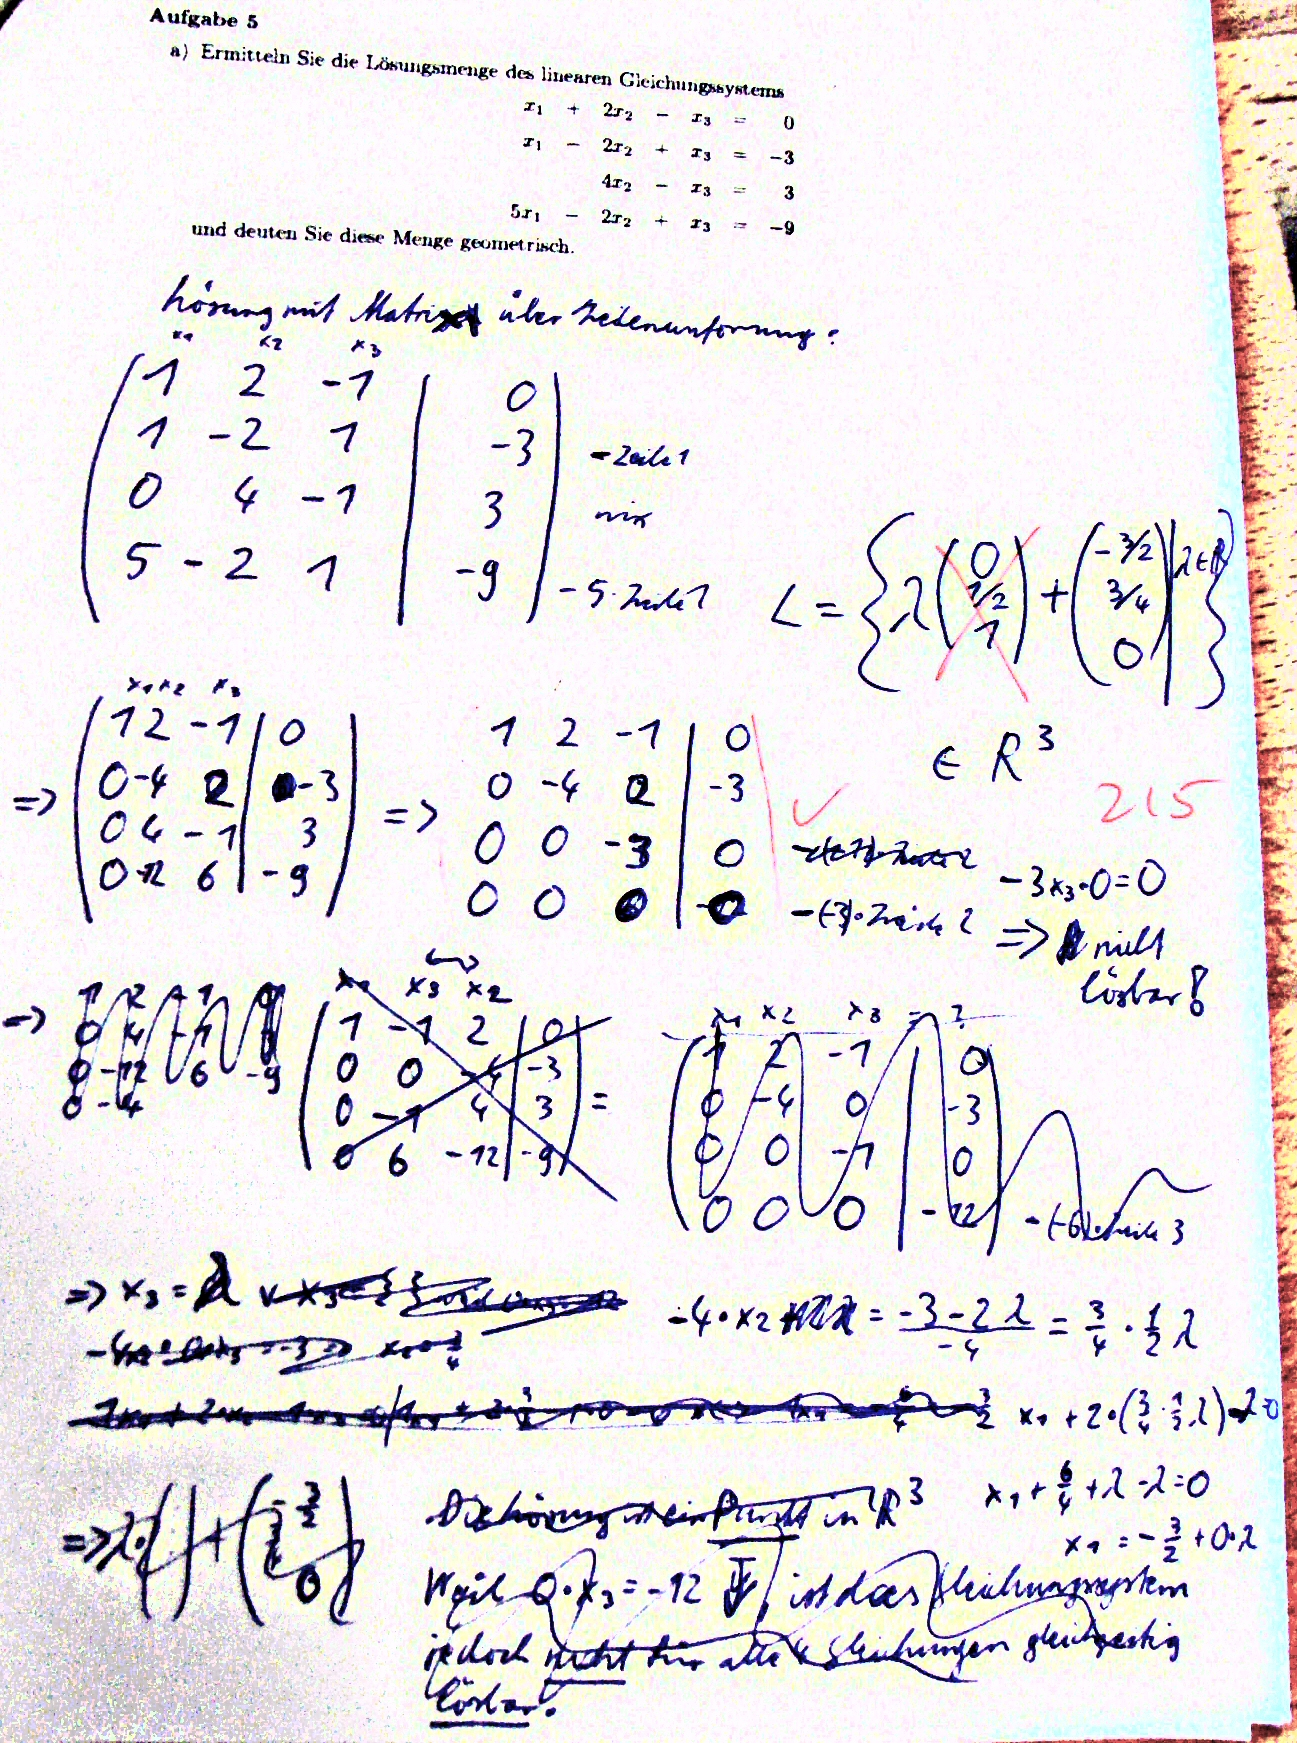 Aufgabe 5
a) Ermitteln Sie die Lösungsmenge des linearen Gleichungssystems
x₁ + 2x₂ − x₃ = 0
x₁ − 2x₂ + x₃ = −3
4x₂ − x₃ = 3
5x₁ − 2x₂ + x₃ = −9
und deuten Sie diese Menge geometrisch.
Lösung mit Matrix über Zeilenumformung:
x₁ x₂ x₃
1 2 -1 | 0
1 -2 1 | -3 -Zeile 1
0 4 -1 | 3 nix
5 -2 1 | -9 -5·Zeile 1
L = { λ (0 1/2 1) + (-3/2 3/4 0) | λ ∈ R }
∈ R³
215
x₁ x₂ x₃
=> 1 2 -1 | 0
0 -4 2 | -3
0 4 -1 | 3
0 -12 6 | -9
=> 1 2 -1 | 0
0 -4 2 | -3 ✓
0 0 -3 | 0
0 0 0 | 0 -(-3)·Zeile 2
-3x₃·0=0
=> nicht
lösbar!
=> 1 2 -1 0
0 4 -1
0 -12 6 -9
0 -4
x₁ x₃ x₂
1 -1 2 | 0
0 0 -4 | -3
0 -1 4 | 3 =
0 6 -12 | -9
x₁ x₂ x₃ = ?
1 2 -1 | 0
0 -4 0 | -3
0 0 -1 | 0
0 0 0 | -12 -(-6)·Zeile 3
=> x₃ = λ
-4·x₂ = -3-2λ / -4 = 3/4 · 1/2 λ
x₁ + 2·(3/4 · 1/2 λ) - λ = 0
x₁ + 6/4 + λ - λ = 0
x₁ = -3/2 + 0·λ
=> λ·( ) + (-3/2 3/4 0)
Die Lösung ist ein Punkt in R³
Weil 0·x₃ = -12 ist das Gleichungssystem
jedoch nicht für alle 4 Gleichungen gleichzeitig
lösbar.